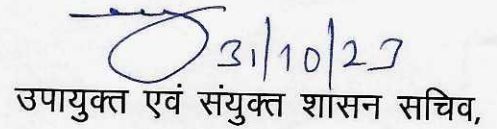 31/10/23
उपायुक्त एवं संयुक्त शासन सचिव,